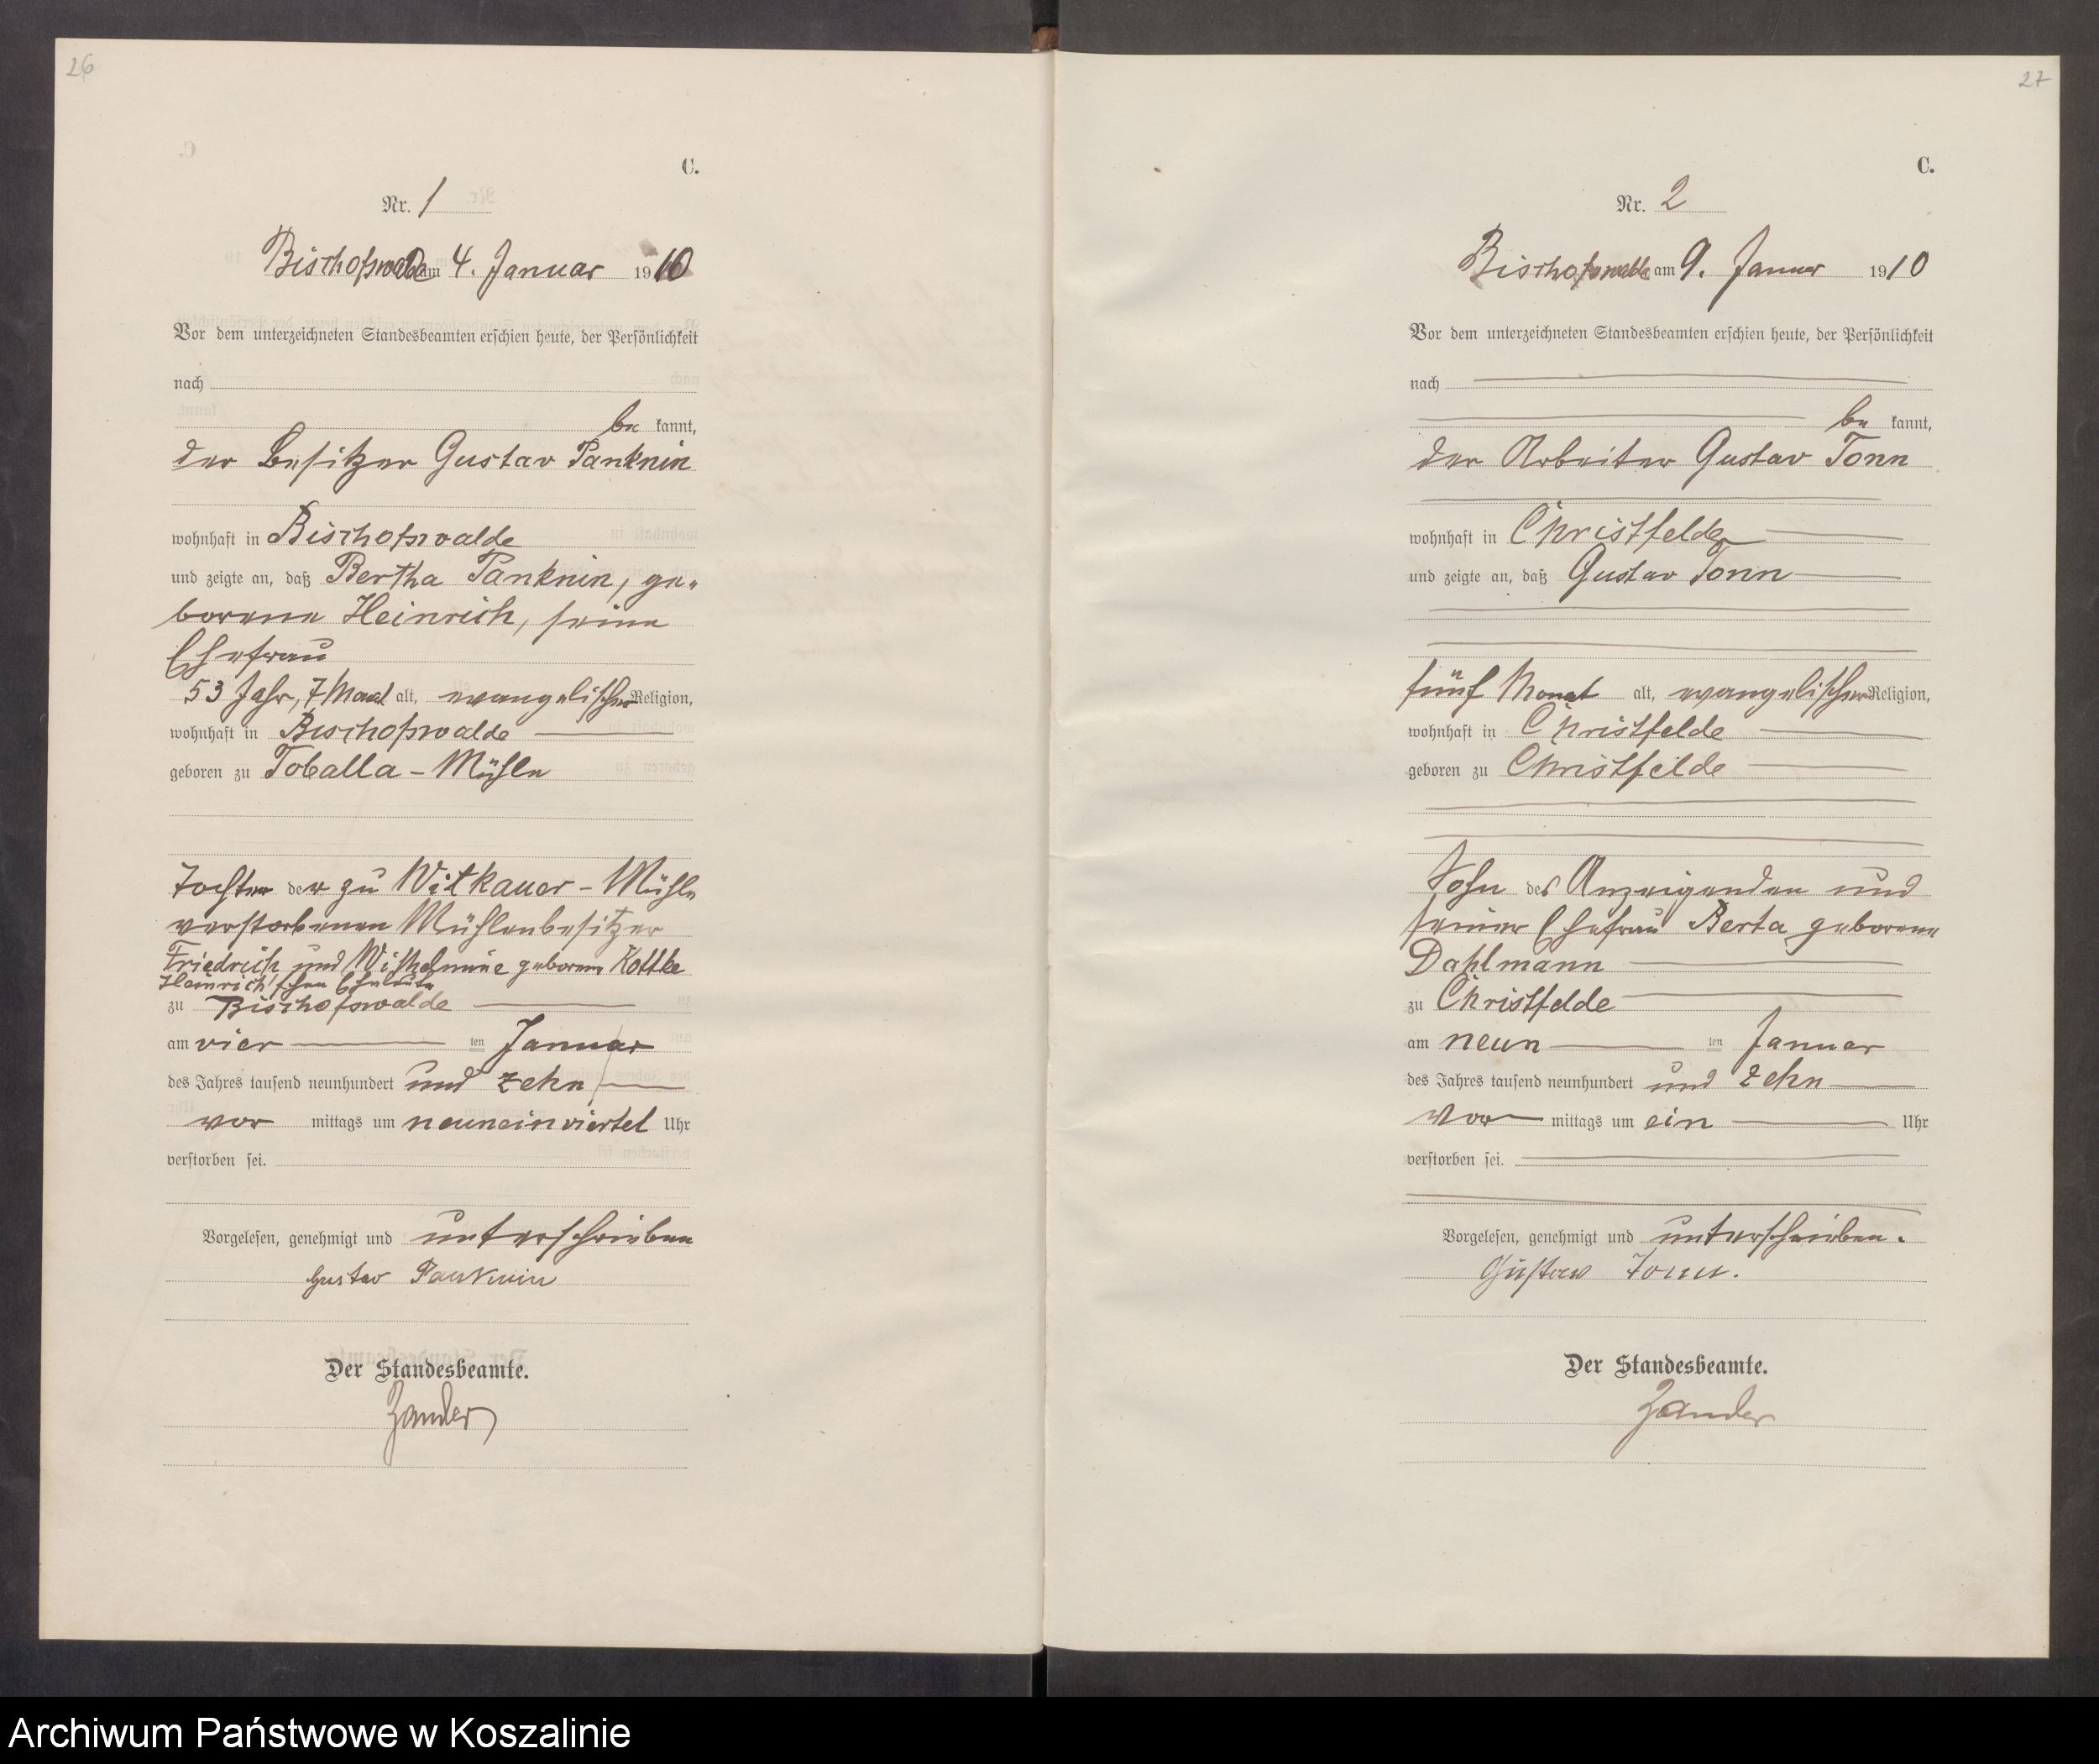 26
C.
Nr. 1
Bischofswalde am 4. Januar 1910
Vor dem unterzeichneten Standesbeamten erschien heute, der Persönlichkeit
nach
be kannt,
der Besitzer Gustav Panknin
wohnhaft in Bischofswalde
und zeigte an, daß Bertha Panknin, ge-
borene Heinrich, seine
Ehefrau
53 Jahr, 7 Monat alt, evangelischer Religion,
wohnhaft in Bischofswalde
geboren zu Toballa-Mühle
Tochter der zu Witkauer-Mühle
verstorbenen Mühlenbesitzer
Friedrich und Wilhelmine geborene Kottke
Heinrich'schen Eheleute
zu Bischofswalde
am vier ten Januar
des Jahres tausend neunhundert und zehn
vor mittags um neuneinviertel Uhr
verstorben sei.
Vorgelesen, genehmigt und unterschrieben
Gustav Panknin
Der Standesbeamte.
Zander
27
C.
Nr. 2
Bischofswalde am 9. Januar 1910
Vor dem unterzeichneten Standesbeamten erschien heute, der Persönlichkeit
nach
be kannt,
der Arbeiter Gustav Tonn
wohnhaft in Christfelde
und zeigte an, daß Gustav Tonn
fünf Monat alt, evangelischer Religion,
wohnhaft in Christfelde
geboren zu Christfelde
Sohn des Anzeigenden und
seiner Ehefrau Berta geborene
Dahlmann
zu Christfelde
am neun ten Januar
des Jahres tausend neunhundert und zehn
Vor mittags um ein Uhr
verstorben sei.
Vorgelesen, genehmigt und unterschrieben.
Gustav Tonn.
Der Standesbeamte.
Zander
Archiwum Państwowe w Koszalinie